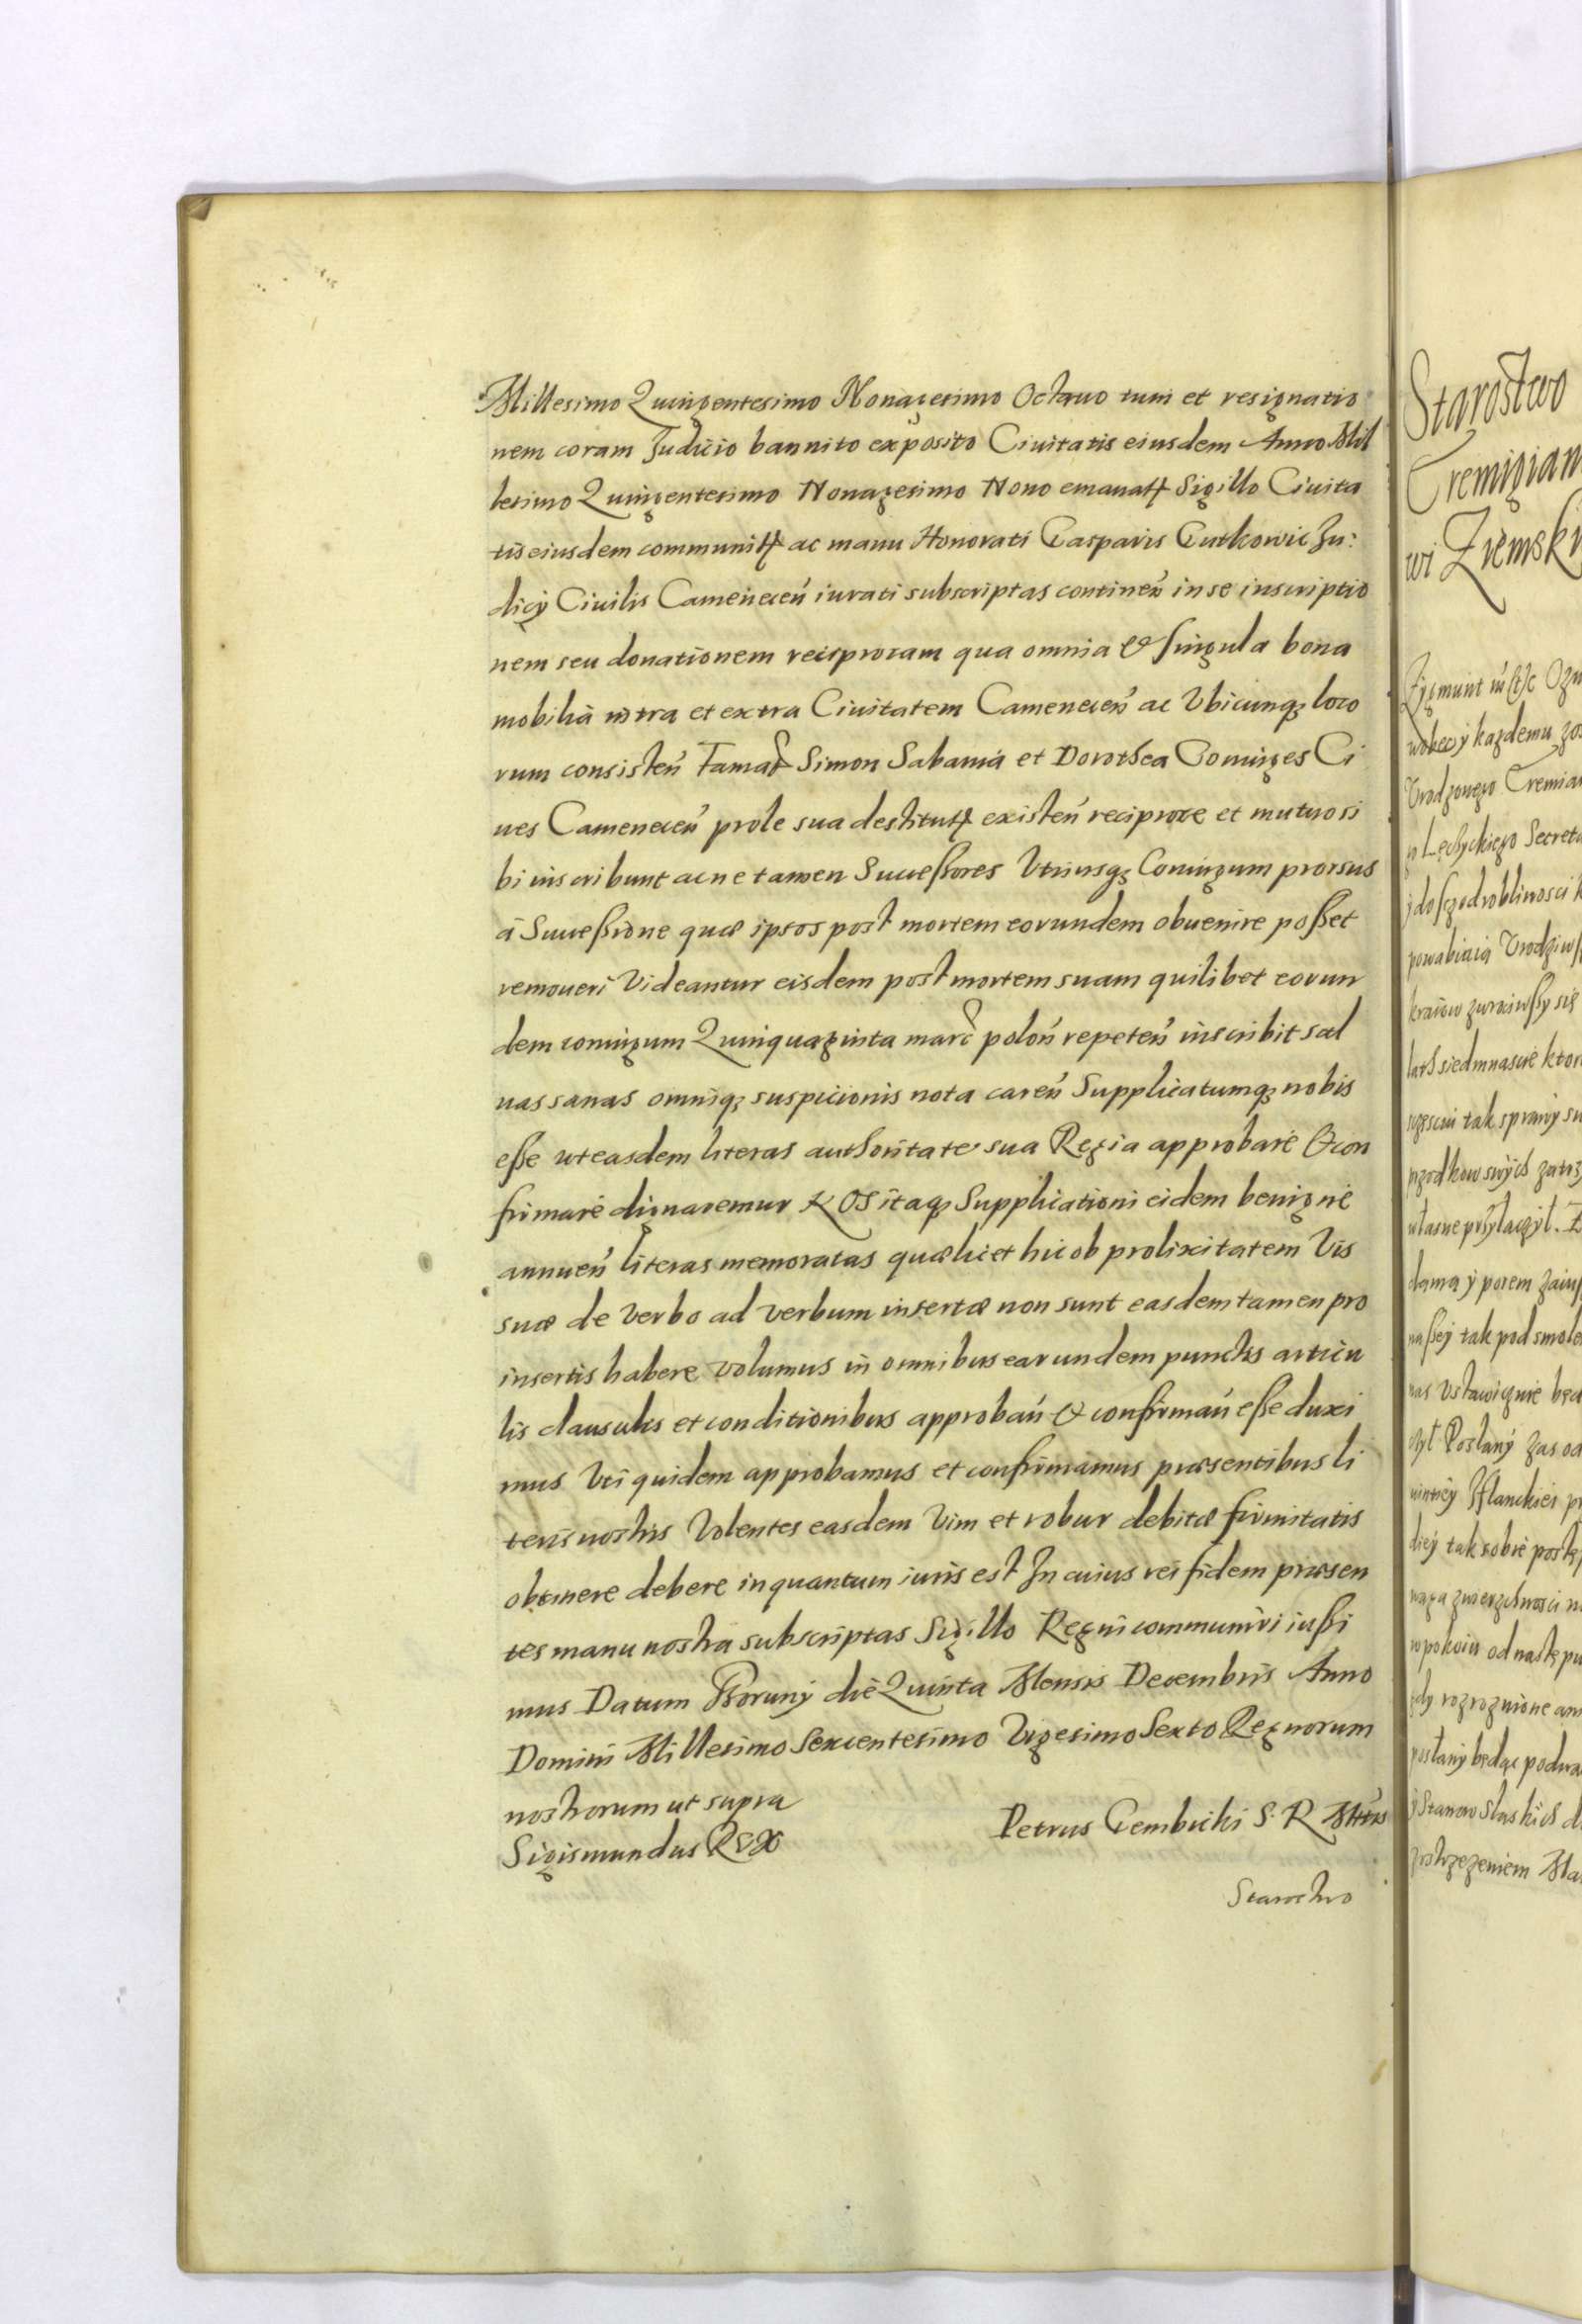 Millesimo Quingentesimo Nonagesimo Octauo tum et resignatio
nem coram Judicio bannito exposito Ciuitatis eiusdem Anno Mil
lesimo Quingentesimo Nonagesimo Nono emanatt Sigillo Ciuita
tis eiusdem communitt ac manu Honorati Casparis Cutkowic Ju:
dicy Ciuilis Camenecen̄ iurati subscriptas continen̄ in se inscriptio
nem seu donationem reciprocam qua omnia & singula bona
mobilia intra et extra Ciuitatem Camenecen̄ ac Vbicunq; loco
rum consisten̄ Famat Simon Sabania et Dorothea Coniuges Ci
ues Camenecen̄ prole sua destitutt existen̄ reciproce et mutuo si
bi inscribunt ac ne tamen Successores Vtriusq; Coniugum prorsus
à Successione quæ ipsos post mortem eorundem obuenire posset
remoueri Videantur eisdem post mortem suam quilibet eorun
dem coniugum Quinquaginta marc̄ polon̄ repeten̄ inscribit sal
uas sanas omniq; suspicionis nota caren̄ Supplicatumq; nobis
esse ut easdem literas authoritate sua Regia approbare & con
firmare dignaremur NOS itaq; Supplicationi eidem benigne
annuen̄ literas memoratas quæ licet hic ob prolixitatem Vis
suæ de Verbo ad Verbum insertæ non sunt easdem tamen pro
insertis habere volumus in omnibus earundem punctis articu
lis clausulis et conditionibus approban̄ & confirman̄ esse duxi
mus Vti quidem approbamus et confirmamus præsentibus li
teris nostris Volentes easdem Vim et robur debitæ firmitatis
obtinere debere in quantum iuris est In cuius rei fidem præsen
tes manu nostra subscriptas Sigillo Regni communiri iussi
mus Datum Thoruny die Quinta Mensis Decembris Anno
Domini Millesimo Sexcentesimo Vigesimo Sexto Regnorum
nostrorum ut supra
Sigismundus REX
Petrus Gembicki S. R. Mttis
Starostwo
Starostwo
Cremigiam
wi Ziemski
Zygmunt
każdemu
Vrodzonego Cremia
Secreta
siedmnascie
tak sprawy
przodkow swych
potem
naszey tak pod smole
nas Vstawicznie
Posłany zas od
diey tak sobie
zwierzchnosci
w pokoiu od nastę
posłany będąc